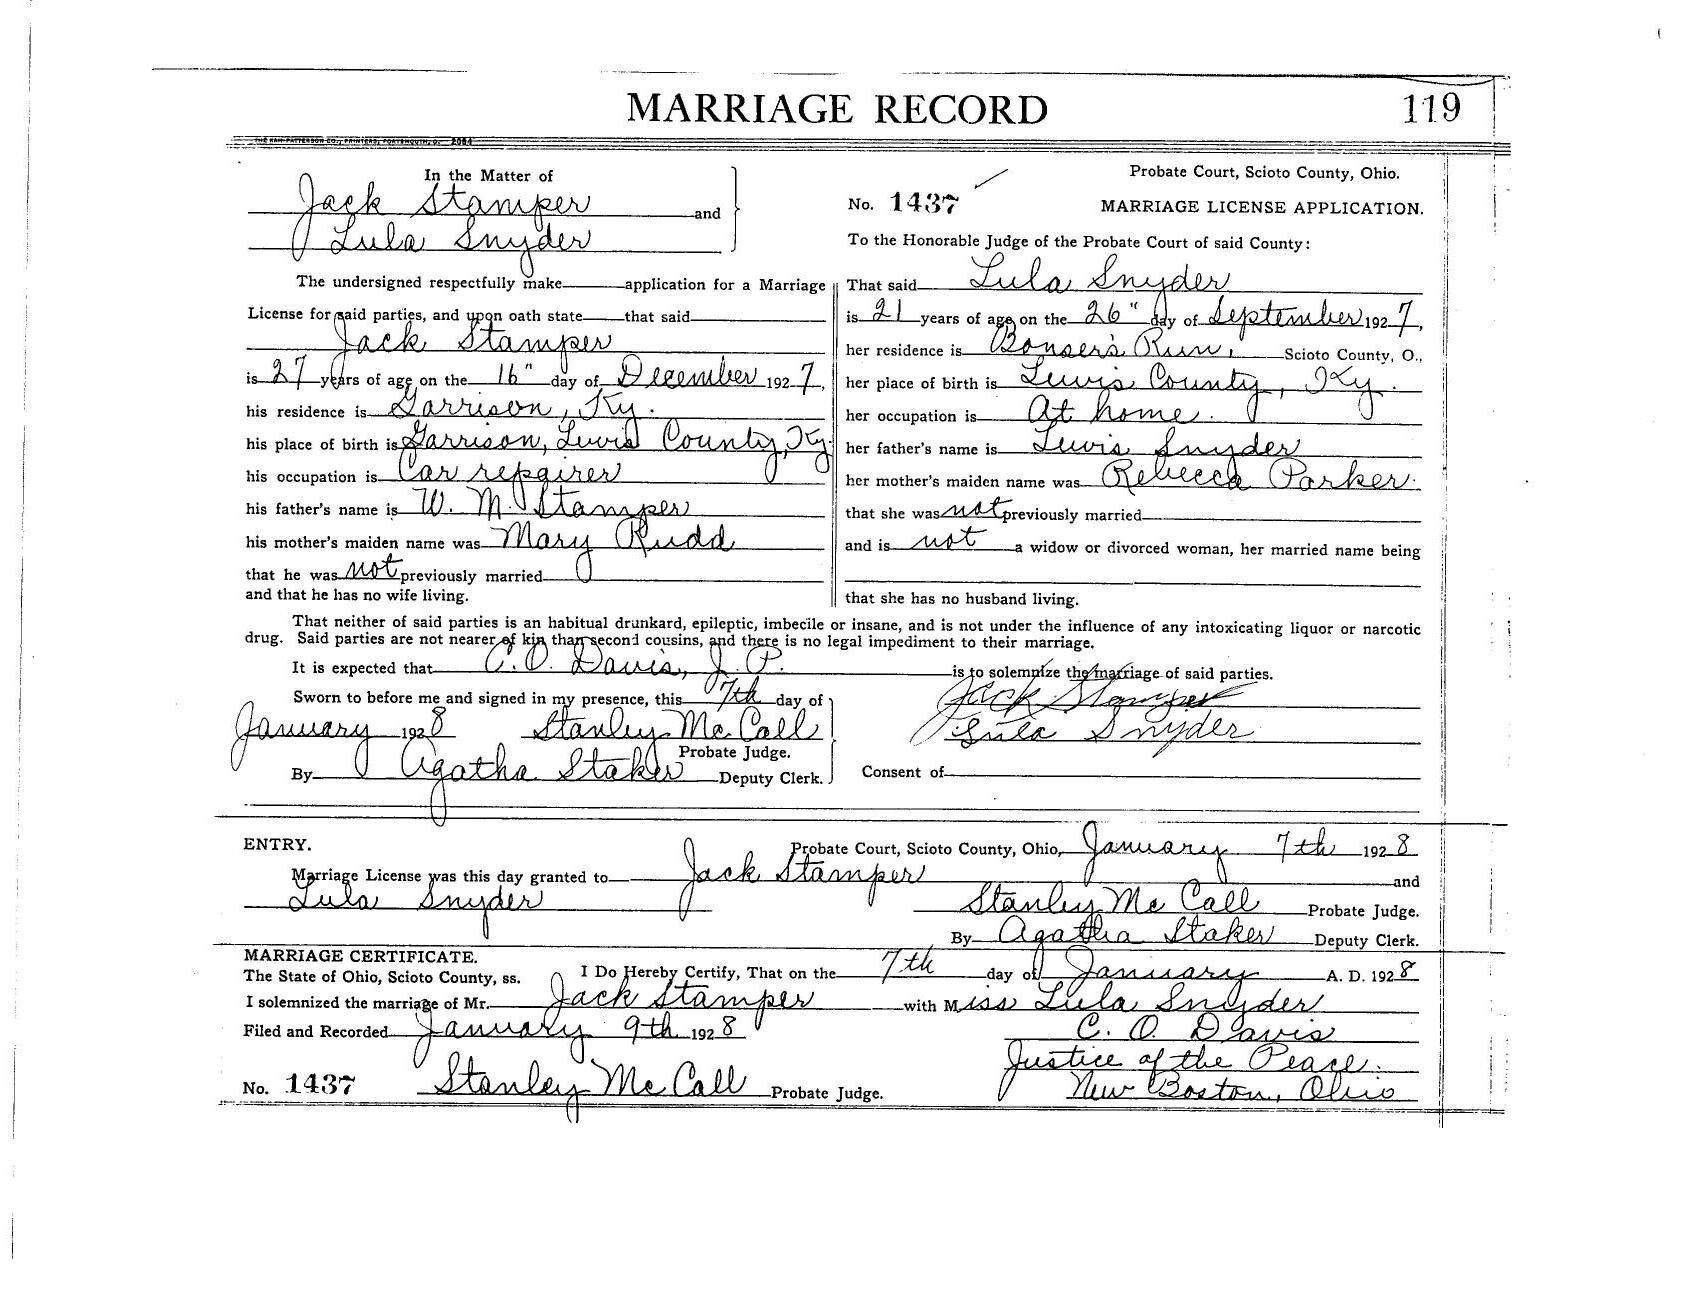 MARRIAGE RECORD 119
THE RAH-PATTERSON CO., PRINTERS, PORTSMOUTH, O. 2084
In the Matter of
Jack Stamper and
Lula Snyder
The undersigned respectfully make application for a Marriage
License for said parties, and upon oath state that said
Jack Stamper
is 27 years of age on the 16" day of December 1927,
his residence is Garrison, Ky.
his place of birth is Garrison, Lewis County, Ky.
his occupation is Car repairer
his father's name is W. M. Stamper
his mother's maiden name was Mary Rudd
that he was not previously married
and that he has no wife living.
Probate Court, Scioto County, Ohio.
No. 1437 MARRIAGE LICENSE APPLICATION.
To the Honorable Judge of the Probate Court of said County:
That said Lula Snyder
is 21 years of age on the 26" day of September 1927,
her residence is Bonser's Run, Scioto County, O.,
her place of birth is Lewis County, Ky.
her occupation is At home.
her father's name is Lewis Snyder
her mother's maiden name was Rebecca Parker.
that she was not previously married
and is not a widow or divorced woman, her married name being
that she has no husband living.
That neither of said parties is an habitual drunkard, epileptic, imbecile or insane, and is not under the influence of any intoxicating liquor or narcotic
drug. Said parties are not nearer of kin than second cousins, and there is no legal impediment to their marriage.
It is expected that C. O. Davis, J. P. is to solemnize the marriage of said parties.
Sworn to before me and signed in my presence, this 7th day of
January 1928 Stanley McCall
Probate Judge.
By Agatha Staker Deputy Clerk.
Jack Stamper
Lula Snyder
Consent of
ENTRY. Probate Court, Scioto County, Ohio, January 7th 1928
Marriage License was this day granted to Jack Stamper and
Lula Snyder Stanley McCall Probate Judge.
By Agatha Staker Deputy Clerk.
MARRIAGE CERTIFICATE.
The State of Ohio, Scioto County, ss. I Do Hereby Certify, That on the 7th day of January A. D. 1928
I solemnized the marriage of Mr. Jack Stamper with Miss Lula Snyder
Filed and Recorded January 9th 1928 C. O. Davis
Justice of the Peace.
No. 1437 Stanley McCall Probate Judge. New Boston, Ohio